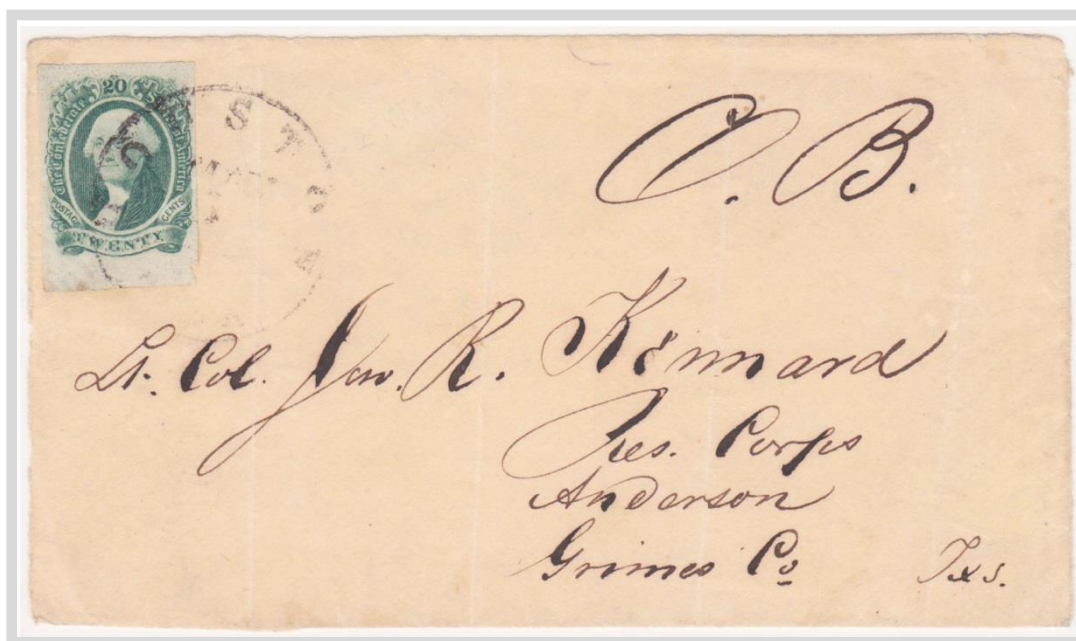 20
The Confederate States of America
POSTAGE CENTS
TWENTY
O. B.
Lt. Col. Jno. R. Kennard
Res. Corps
Anderson
Grimes Co Txs.